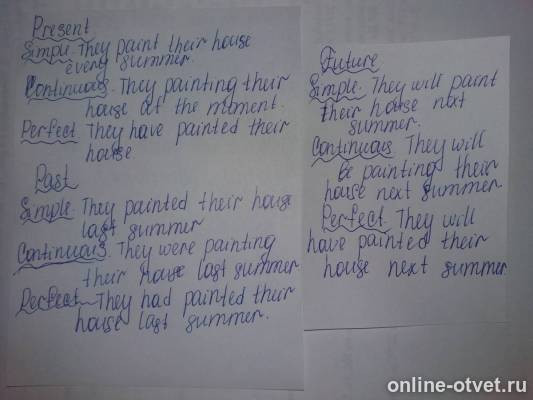 Present
Simple. They paint their house
every summer.
Continuous. They painting their
house at the moment.
Perfect. They have painted their
house
Past
Simple. They painted their house
last summer
Continuous. They were painting
their house last summer
Perfect. They had painted their
house last summer.
Future
Simple. They will paint
their house next
summer.
Continuous. They will
be painting their
house next summer
Perfect. They will
have painted their
house next summer.
online-otvet.ru